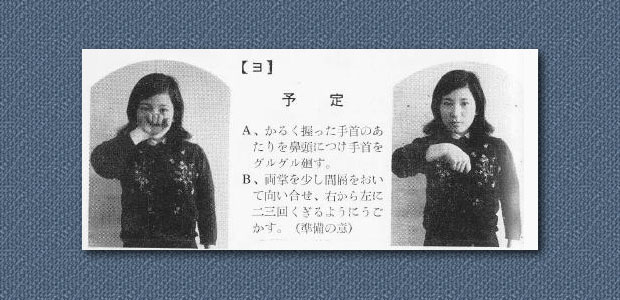 【ヨ】
予定
A、かるく握った手首のあ
たりを鼻頭につけ手首を
グルグル廻す。
B、両掌を少し間隔をおい
て向い合せ、右から左に
二三回くぎるようにうご
かす。（準備の意）